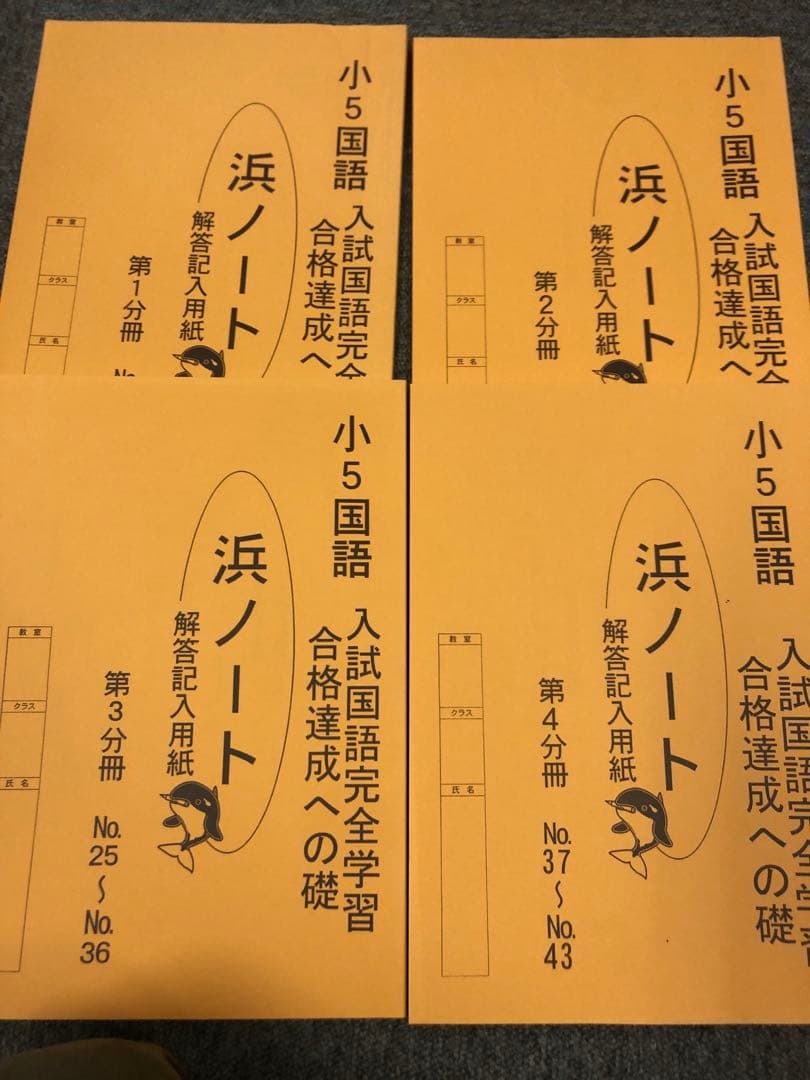 小5国語
入試国語完全
合格達成へ
浜ノート
解答記入用紙
第1分冊
No.
教室
クラス
氏名
小5国語
入試国語完全
合格達成へ
浜ノート
解答記入用紙
第2分冊
教室
クラス
氏名
小5国語
入試国語完全学習
合格達成への礎
浜ノート
解答記入用紙
第3分冊 No.25〜No.36
教室
クラス
氏名
小5国語
入試国語完全学習
合格達成への礎
浜ノート
解答記入用紙
第4分冊 No.37〜No.43
教室
クラス
氏名